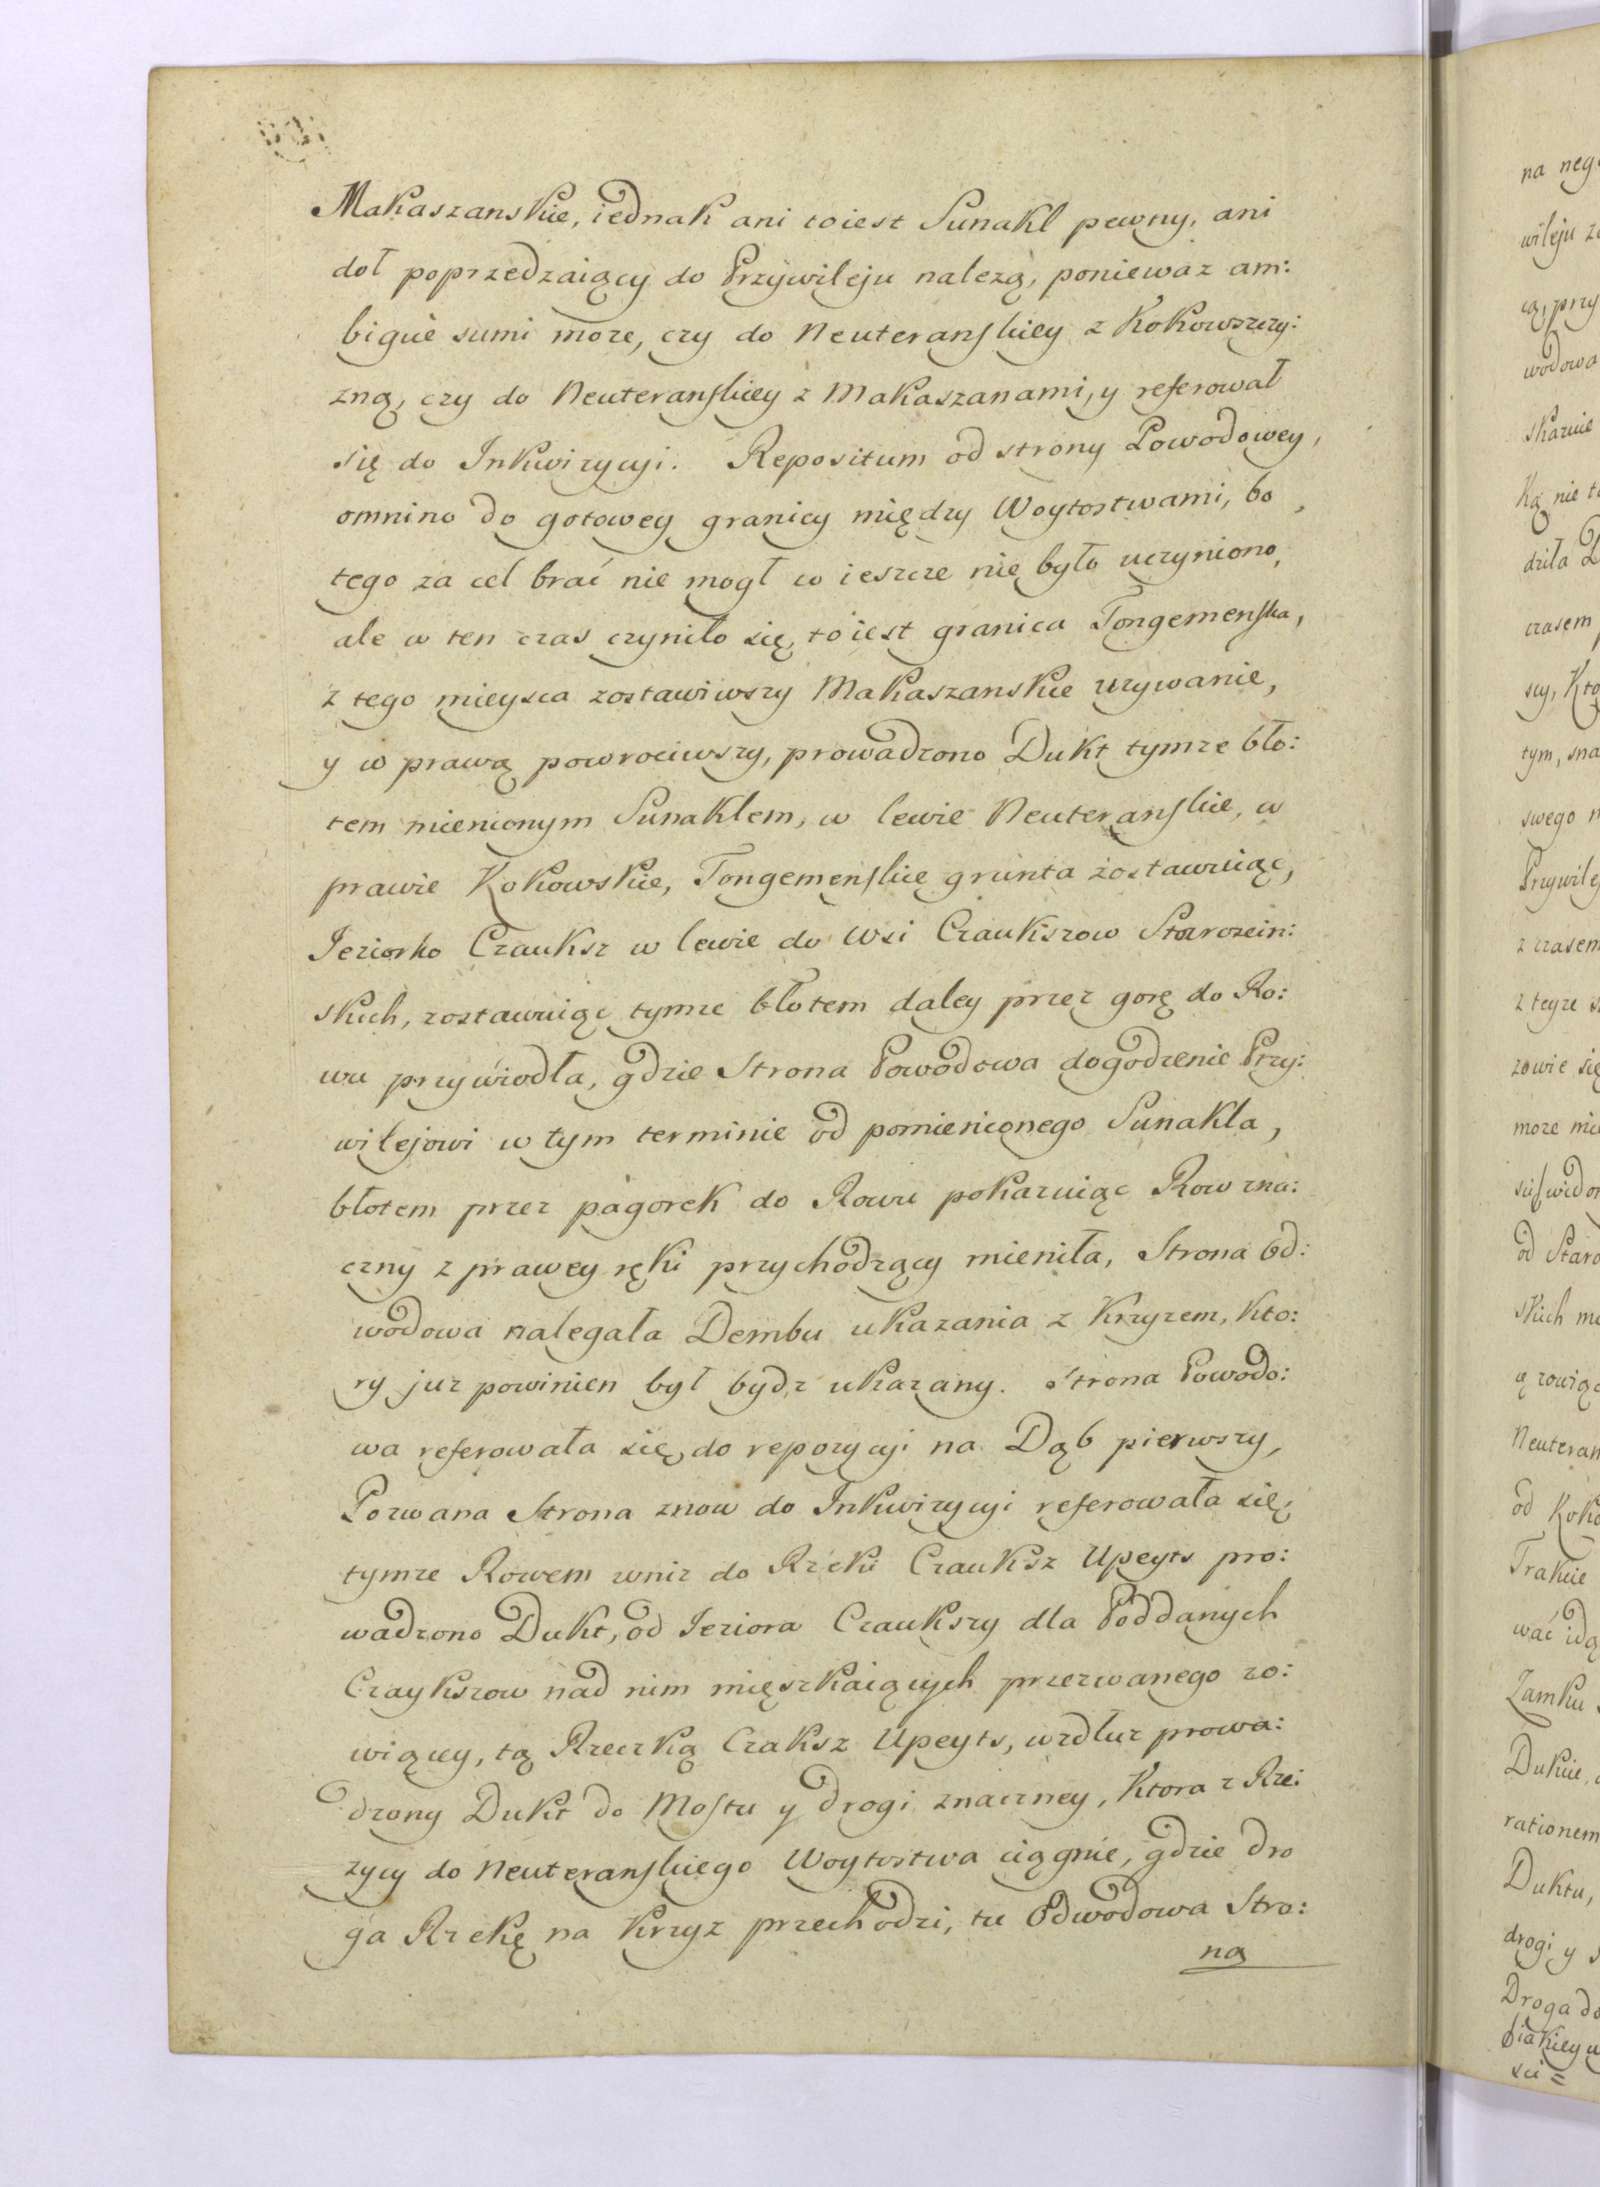 Makaszanskie, iednak ani toiest Sunakl pewny, ani
doł poprzedzaiący do Przywileju nalezą, poniewaz am:
bigue sumi moze, czy do Neuteranskiey z Kokowszczy:
zną, czy do Neuteranskiey z Makaszanami, y referował
się do Inkwizycyi. Repositum od strony Powodowey,
omnino do gotowey granicy między Woytostwami, bo
tego za cel brać nie mogł co ieszcze nie było uczyniono,
ale w ten czas czyniło się, toiest granica Tongemenska,
z tego mieysca zostawiwszy Makaszanskie uzywanie,
y w prawą powrociwszy, prowadzono Dukt tymze bło:
tem mienionym Sunaklem, w lewie Neuteranskie, w
prawie Kokowskie, Tongemenskie grunta zostawuiąc,
Jeziorko Czauksz w lewie do Wsi Czaukszow Starozein:
skich, zostawuiąc tymze błotem daley przez gorę do Ro:
wu przywiodła, gdzie Strona Powodowa dogodzenie Przy:
wilejowi w tym terminie od pomienionego Sunakla,
błotem przez pagorek do Rowu pokazuiąc Row zna:
czny z prawey ręki przychodzący mieniła, Strona Od:
wodowa nalegała Dembu ukazania z Krzyzem, kto:
ry juz powinien był bydz ukazany. Strona Powodo:
wa referowała się do repozycyi na Dąb pierwszy,
Pozwana Strona znow do Inkwizycyi referowała się,
tymze Rowem wniz do Rzeki Czauksz Upeyts pro:
wadzono Dukt, od Jeziora Czaukszy dla Poddanych
Czaykszow nad nim mieszkaiących przezwanego zo:
wiącey, tą Rzeczką Czaksz Upeyts, wzdłuz prowa:
dzony Dukt do Mostu y drogi znaczney, Ktora z Rze:
zycy do Neuteranskiego Woytostwa ciągnie, gdzie dro
ga Rzekę na Krzyz przechodzi, tu Odwodowa Stro:
na
na neg
wileju z
cą, przy
wodowa
skarzie
ką nie t
dziła
czasem
scy, Kto
tym, sna
swego
Przywile
z czasem
z teyze
zowie się
moze mi
od Staro
skich m
Neuteran
od Koko
Trakcie
wać idą
Zamku
Dukcie
rationem
Duktu,
drogi y
Droga do